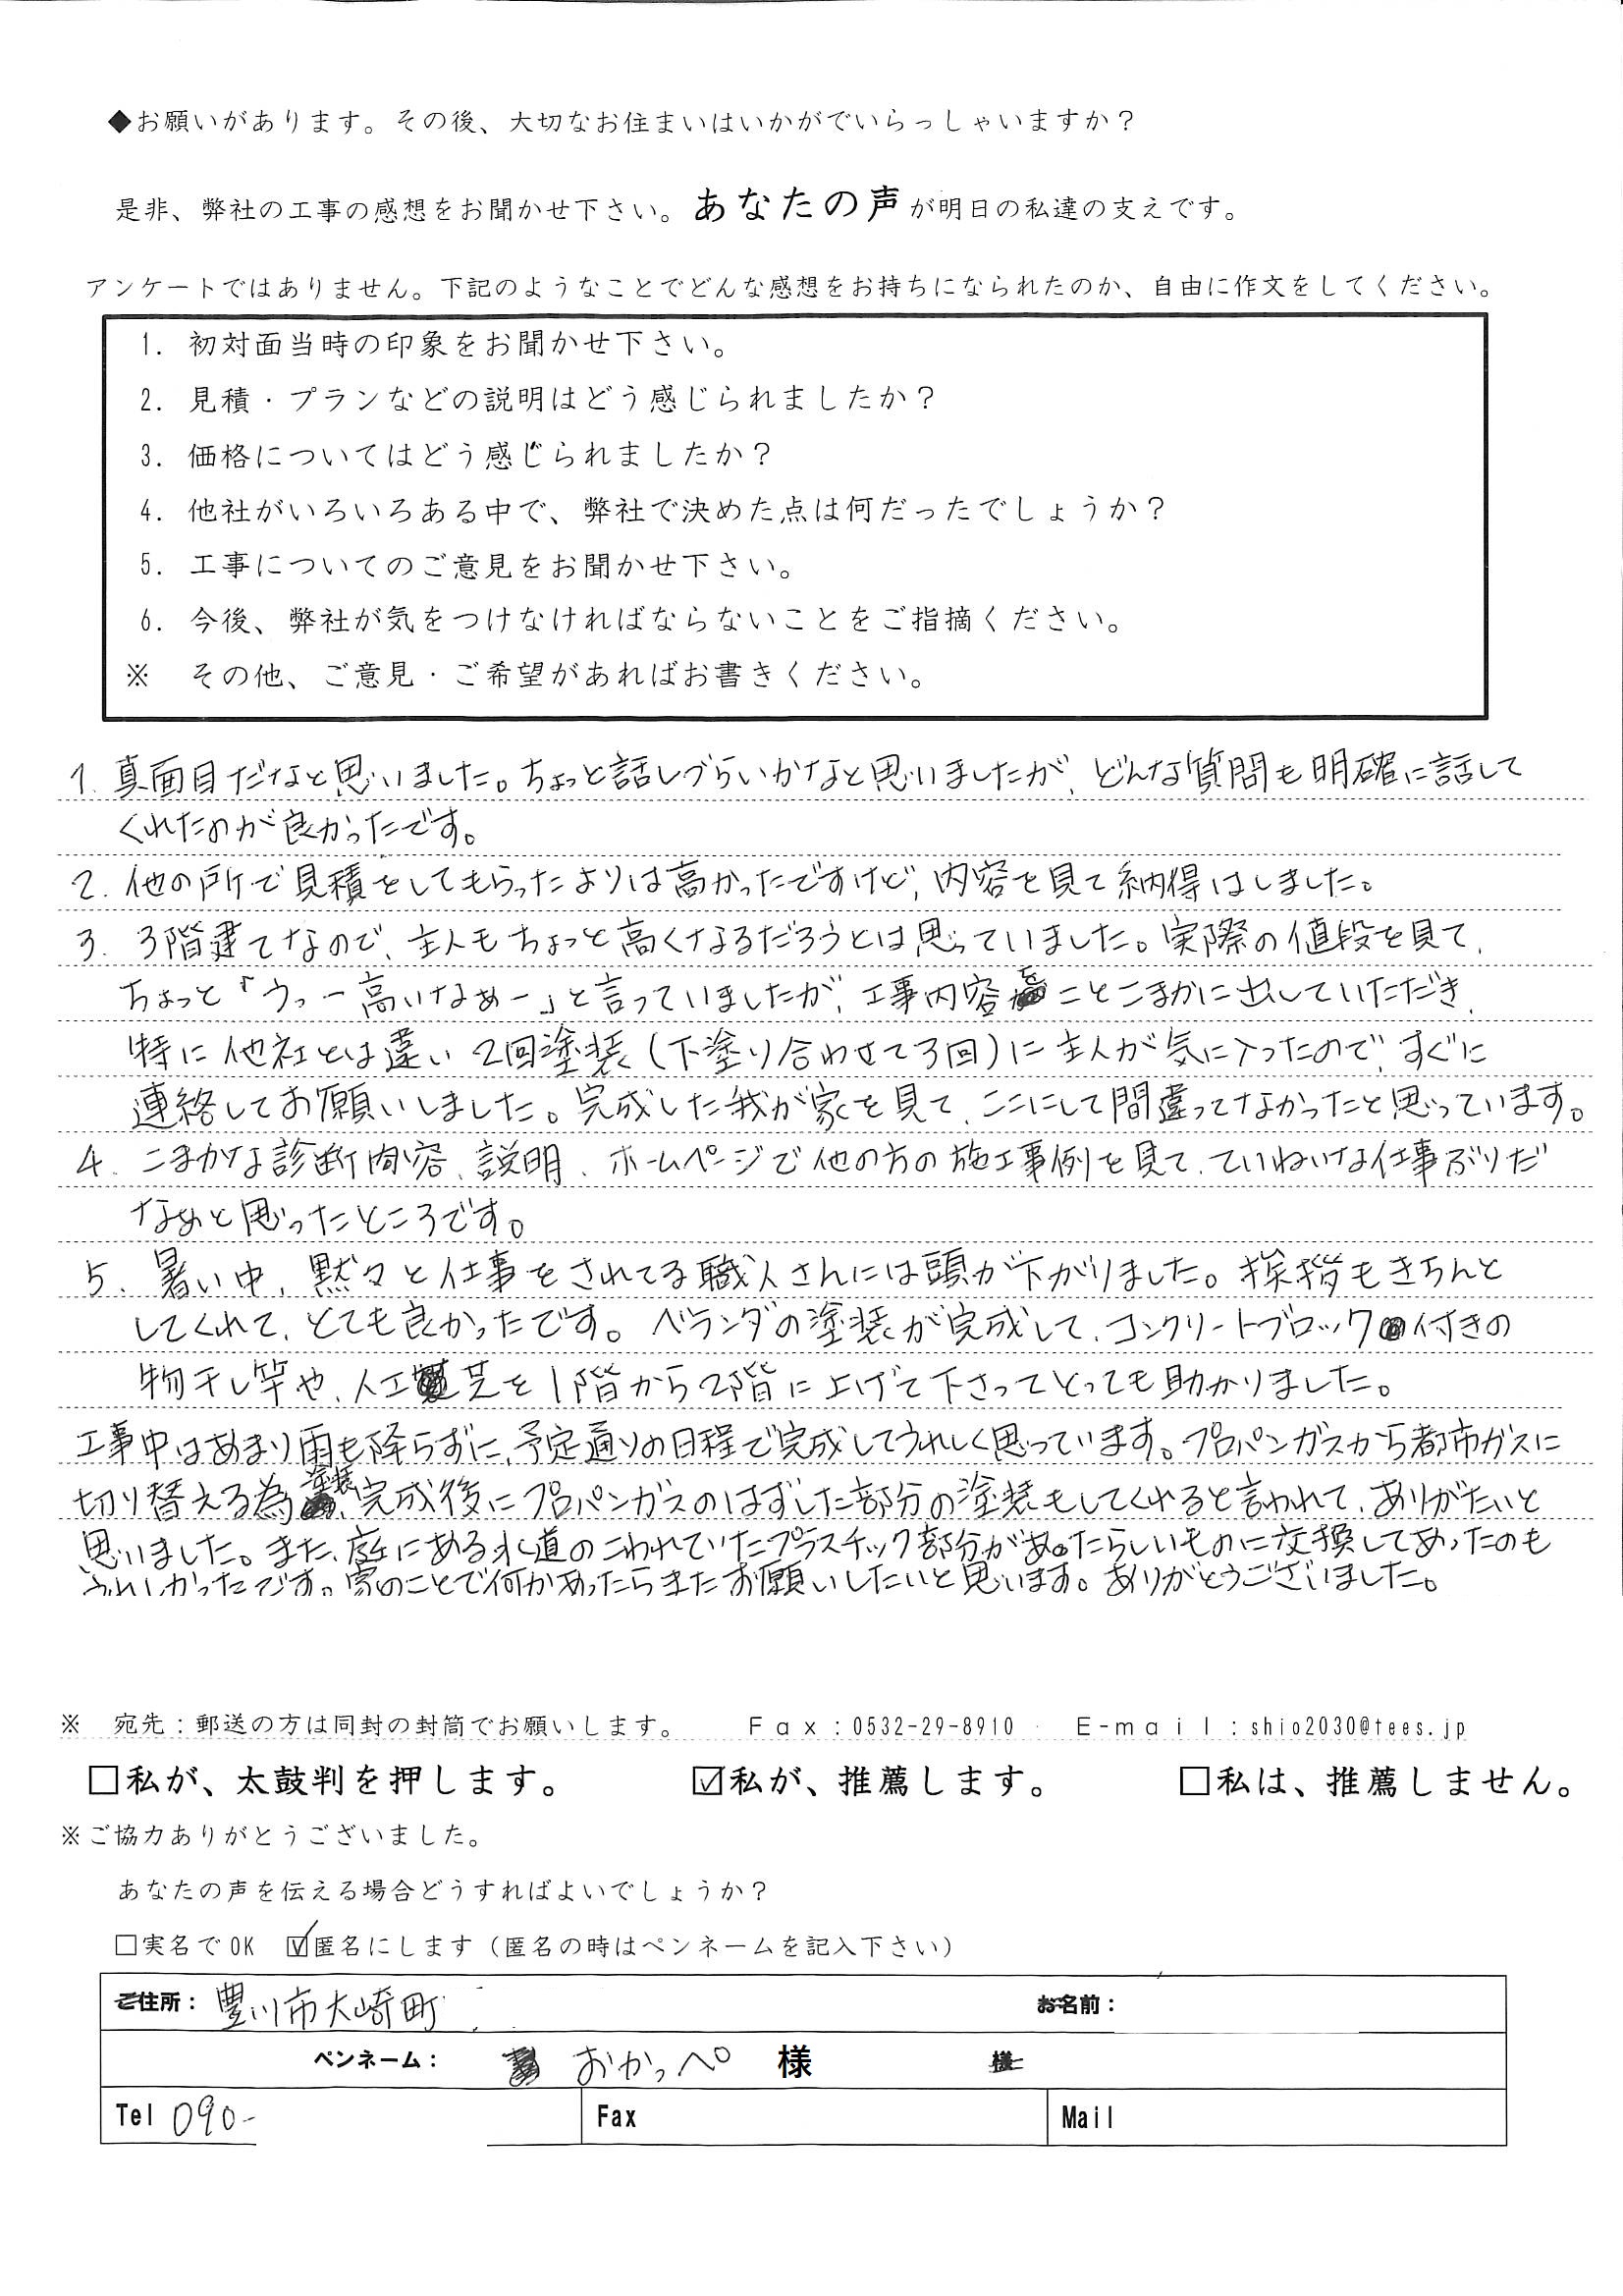 ◆お願いがあります。その後、大切なお住まいはいかがでいらっしゃいますか？
是非、弊社の工事の感想をお聞かせ下さい。あなたの声が明日の私達の支えです。
アンケートではありません。下記のようなことでどんな感想をお持ちになられたのか、自由に作文をしてください。
1. 初対面当時の印象をお聞かせ下さい。
2. 見積・プランなどの説明はどう感じられましたか？
3. 価格についてはどう感じられましたか？
4. 他社がいろいろある中で、弊社で決めた点は何だったでしょうか？
5. 工事についてのご意見をお聞かせ下さい。
6. 今後、弊社が気をつけなければならないことをご指摘ください。
※ その他、ご意見・ご希望があればお書きください。
1. 真面目だなと思いました。ちょっと話しづらいかなと思いましたが、どんな質問も明確に話して
くれたのが良かったです。
2. 他の所で見積をしてもらったよりは高かったですけど、内容を見て納得はしました。
3. 3階建てなので、主人もちょっと高くなるだろうとは思っていました。実際の値段を見て、
ちょっと「うっー高いなぁー」と言っていましたが、工事内容をことこまかに出していただき、
特に他社とは違い2回塗装(下塗り合わせて3回)に主人が気に入ったので、すぐに
連絡してお願いしました。完成した我が家を見て、ここにして間違ってなかったと思っています。
4. こまかな診断内容、説明、ホームページで他の方の施工事例を見て、ていねいな仕事ぶりだ
なぁと思ったところです。
5. 暑い中、黙々と仕事をされてる職人さんには頭が下がりました。挨拶もきちんと
してくれて、とても良かったです。ベランダの塗装が完成して、コンクリートブロック付きの
物干し竿や、人工芝を1階から2階に上げて下さってとっても助かりました。
工事中はあまり雨も降らずに、予定通りの日程で完成してうれしく思っています。プロパンガスから都市ガスに
切り替える為、塗装完成後にプロパンガスのはずした部分の塗装もしてくれると言われて、ありがたいと
思いました。また、庭にある水道のこわれていたプラスチック部分があったらしいものに交換してあったのも
うれしかったです。家のことで何かあったらまたお願いしたいと思います。ありがとうございました。
※ 宛先：郵送の方は同封の封筒でお願いします。 Fax：0532-29-8910 E-mail：shio2030@tees.jp
□私が、太鼓判を押します。 ☑私が、推薦します。 □私は、推薦しません。
※ご協力ありがとうございました。
あなたの声を伝える場合どうすればよいでしょうか？
□実名でOK ☑匿名にします（匿名の時はペンネームを記入下さい）
ご住所： 豊川市大崎町 お名前：
ペンネーム： おかっぺ 様 様
Tel 090- Fax Mail